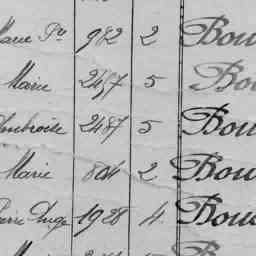 Marie Pre 982 2 Bou
Marie 2497 5 Bou
Ambroise 2487 5 Bou
Marie 804 2 Bou
Pierre Ange 1928 4 Bou